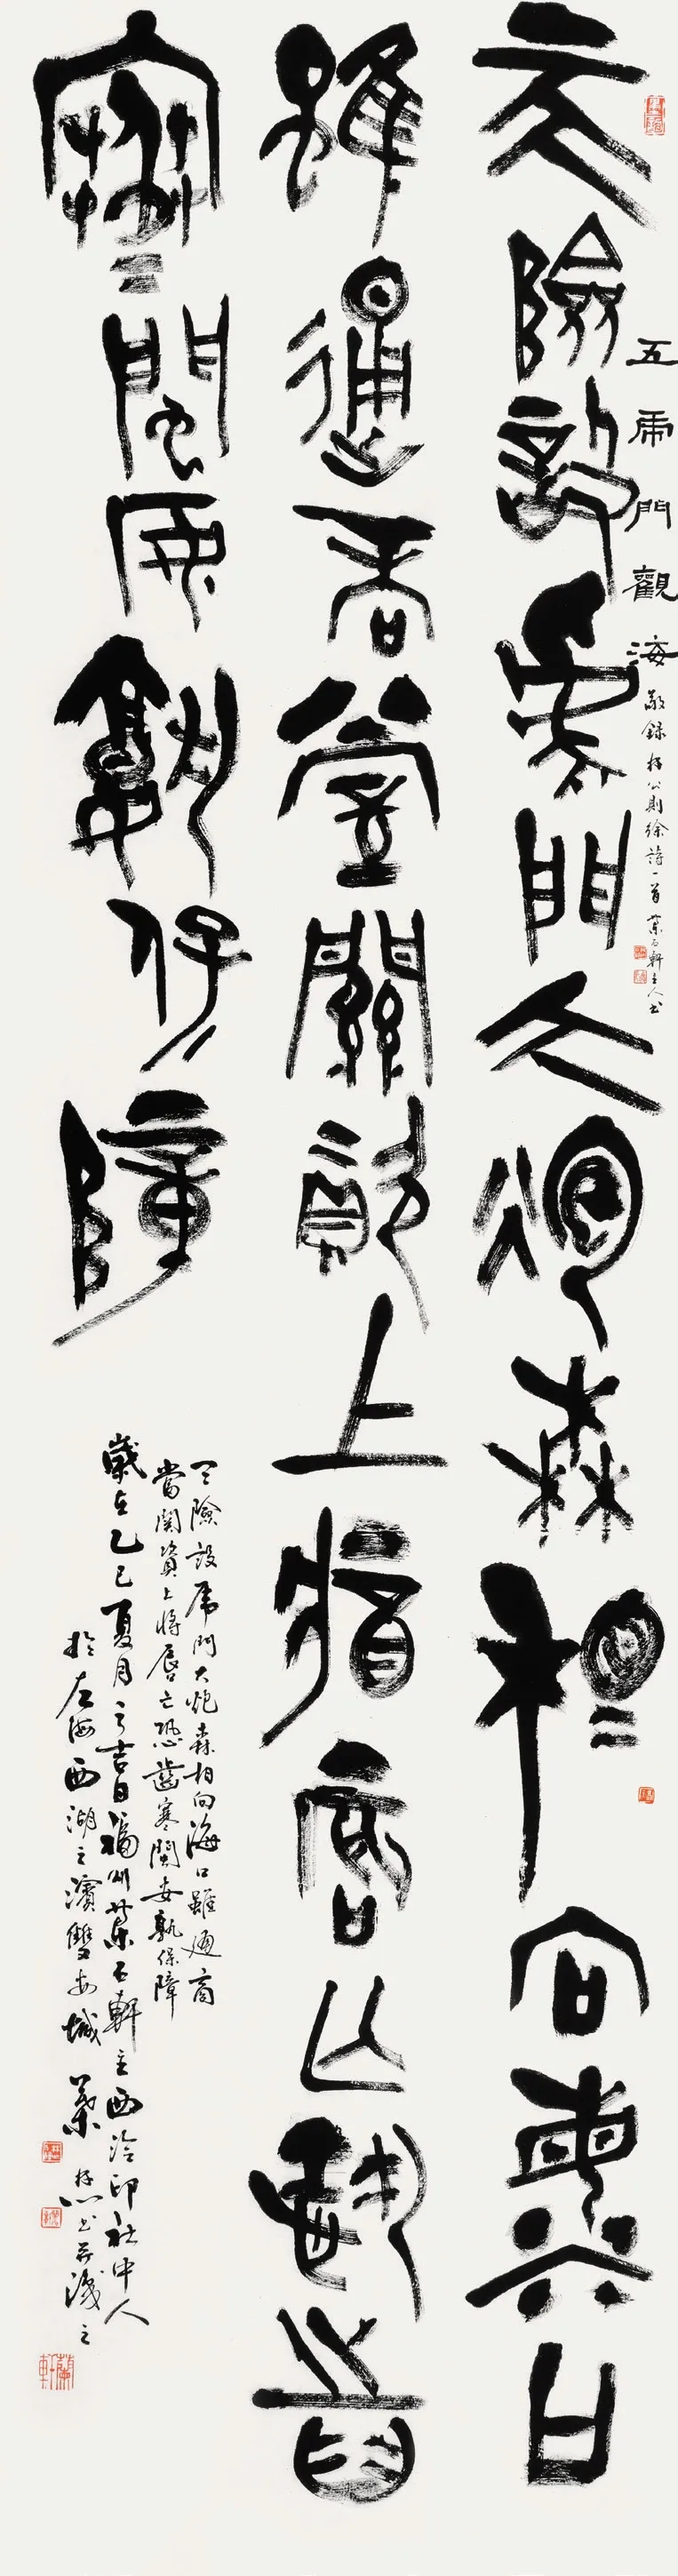 五虎門觀海
敬録林公則徐詩一首 葉石軒主人書
天險設虎門大炮森相向海口
雖通商當關資上將唇亡恐齒
寒閩安孰保障
天險設虎門大炮森相向海口雖通商
當關資上將唇亡恐齒寒閩安孰保障
歲在乙巳夏月之吉日福州葉石軒主西泠印社中人
於左海西湖之濱雙安城 葉林心書并識之